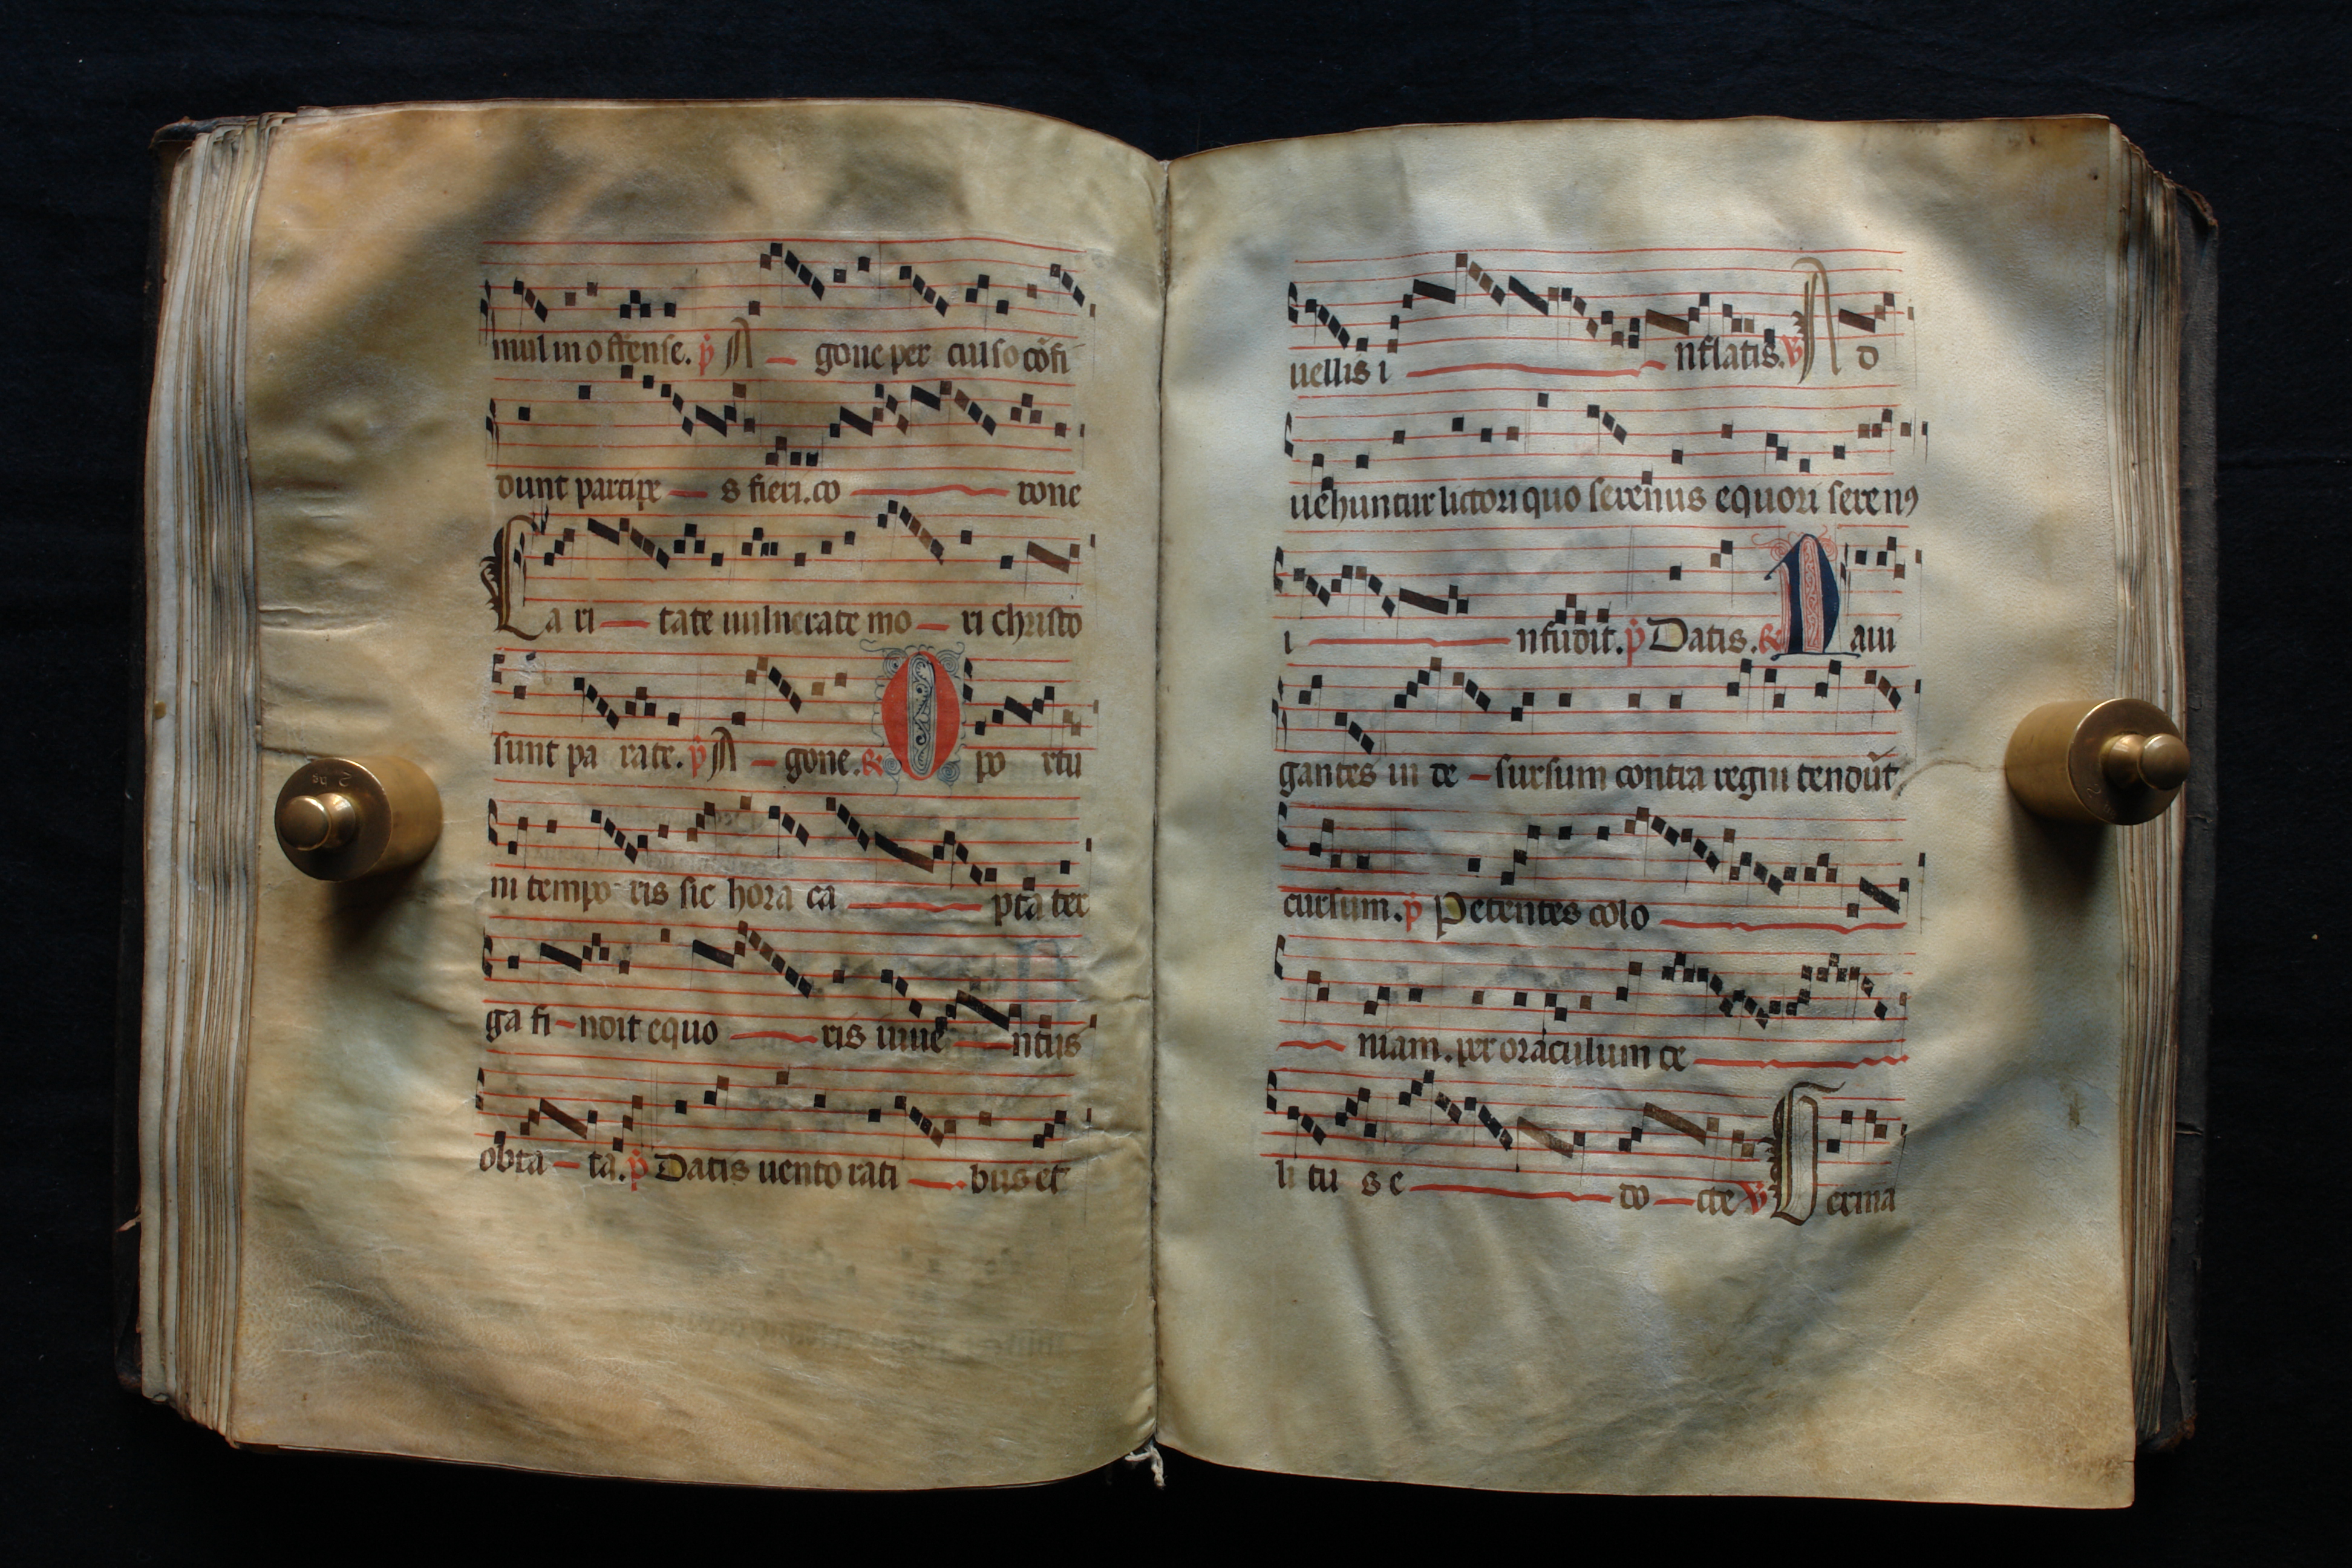 mul in offense. ꝟ A — gone per cul so cōfi
dunt partire — s fieri. co — rone
Ca ri — tate uulnerate mo — ri christo
sunt pa rate. ꝟ A — gone. O po rtu
ni tempo ris sic hora ca — pta ter
ga fi — ndit equo — ris iuue — ntus
obta — ta. Datis uento rati — bus et
uellis i — nflatis. A d
uehuntur lictori quo serenus equori seren9
i — nfudit. Datis. D aui
gantes in de — sursum contra regni tendūt
cursum. Petentes colo —
— niam. per oraculum ce —
li tu s e — do — cte Germa